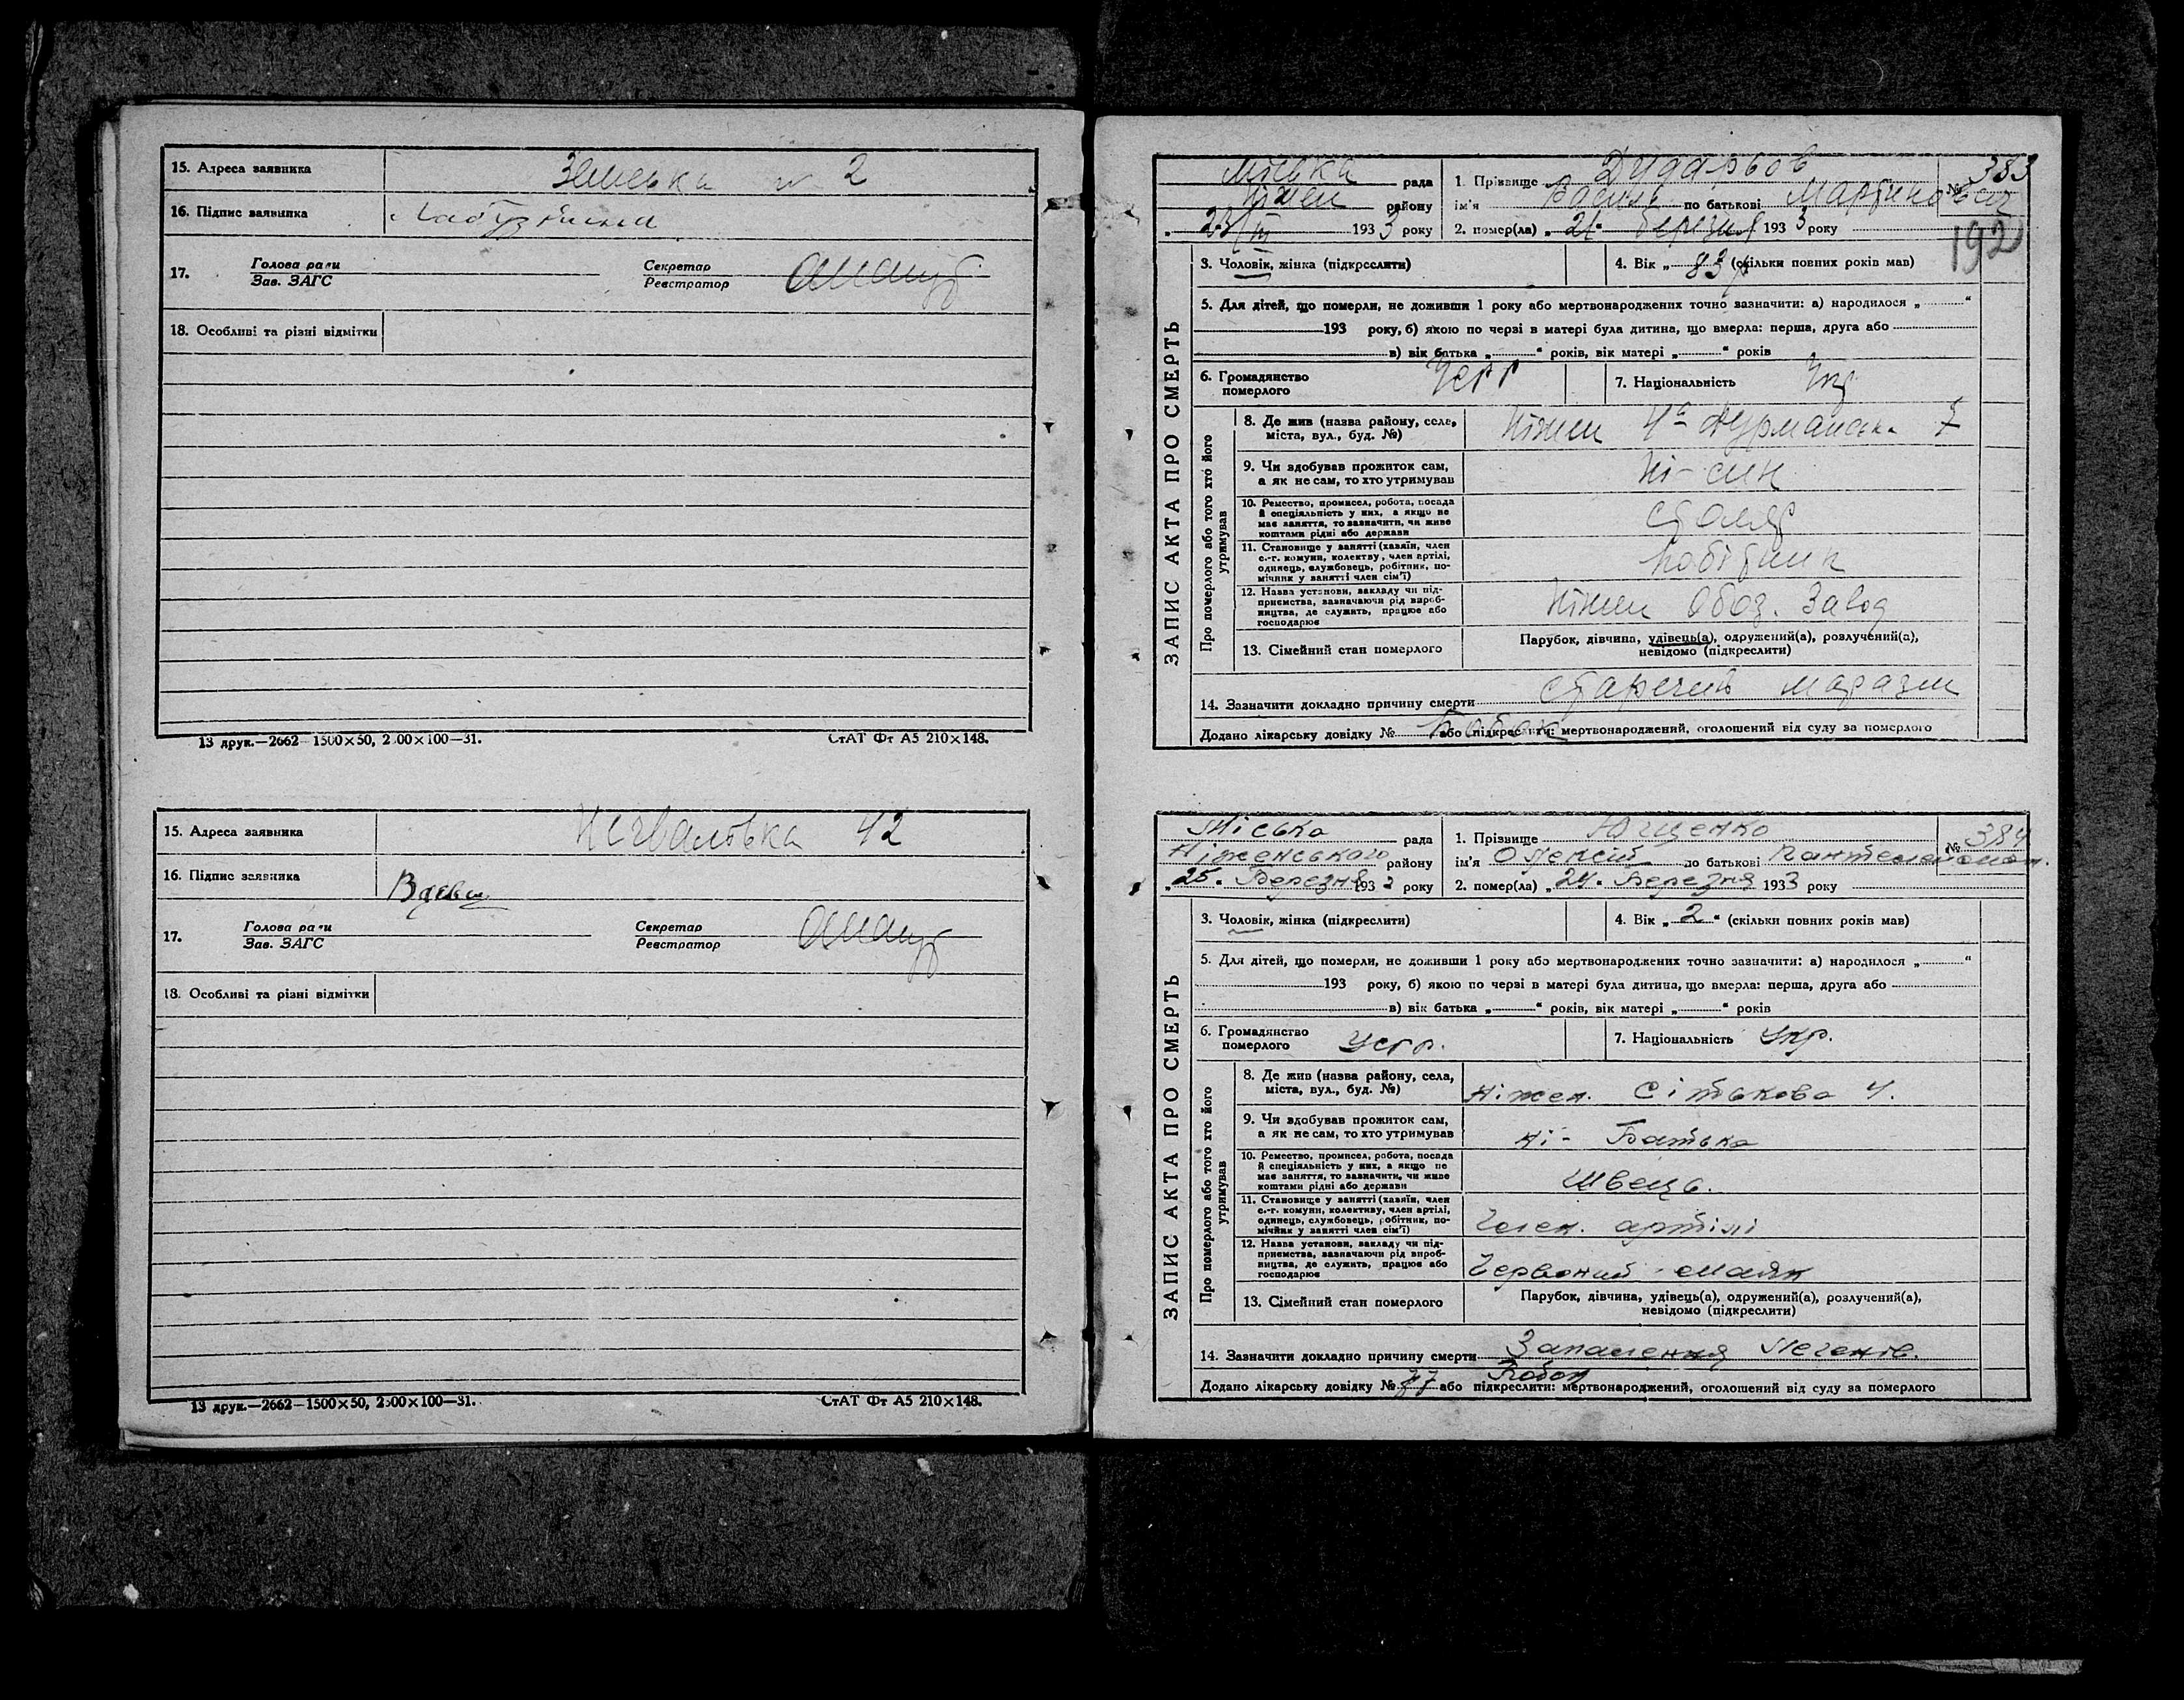 15. Адреса заявника Земська № 2
16. Підпис заявника
17. Голова ради Секретар
Зав. ЗАГС Реєстратор
18. Особливі та різні відмітки
13 друк.—2662—1500×50, 2.00×100—31. СтАТ Фт А5 210×148.
15. Адреса заявника 42
16. Підпис заявника
17. Голова ради Секретар
Зав. ЗАГС Реєстратор
18. Особливі та різні відмітки
13 друк.—2662—1500×50, 2500×100—31. СтАТ Фт А5 210×148.
ЗАПИС АКТА ПРО СМЕРТЬ
Міська рада 1. Прізвище Дударьов № 383
Ніжен району ім'я Василь по батькові Мартинович
„ 23/III 1933 року 2. помер(ла) „ 21 “ березня 1933 року
192
3. Чоловік, жінка (підкреслити) 4. Вік „ 83 “ (скільки повних років мав)
5. Для дітей, що померли, не доживши 1 року або мертвонароджених точно зазначити: а) народилося „ “
193 року, б) якою по черзі в матері була дитина, що вмерла: перша, друга або
в) вік батька „ “ років, вік матері „ “ років
6. Громадянство Усрр 7. Національність Укр
померлого
Про померлого або того хто його утримував
8. Де жив (назва району, села, Ніжен
міста, вул., буд. №)
9. Чи здобував прожиток сам, Ні - син
а як не сам, то хто утримував
10. Ремество, промисел, робота, посада столяр
й спеціяльність у них, а якщо не
має заняття, то зазначити, чи живе
коштами рідні або держави
11. Становище у занятті (хазяїн, член робітник
с.-г. комуни, колективу, член артілі,
одинець, службовець, робітник, по-
мічник у занятті член сім'ї)
12. Назва установи, закладу чи під- Ніжен Обоз. Завод
приємства, зазначаючи рід вироб-
ництва, де служить, працює або
господарює
13. Сімейний стан померлого Парубок, дівчина, удівець(а), одружений(а), розлучений(а),
невідомо (підкреслити)
14. Зазначити докладно причину смерти старечий маразм
Додано лікарську довідку № або підкреслити: мертвонароджений, оголошений від суду за померлого
ЗАПИС АКТА ПРО СМЕРТЬ
Міська рада 1. Прізвище Ющенко № 384
Ніженського району ім'я Олексій по батькові
„ 25 “ Березня 193 року 2. помер(ла) „ 24 “ Березня 1933 року
3. Чоловік, жінка (підкреслити) 4. Вік „ 2 “ (скільки повних років мав)
5. Для дітей, що померли, не доживши 1 року або мертвонароджених точно зазначити: а) народилося „ “
193 року, б) якою по черзі в матері була дитина, що вмерла: перша, друга або
в) вік батька „ “ років, вік матері „ “ років
6. Громадянство Усрр. 7. Національність Укр.
померлого
Про померлого або того хто його утримував
8. Де жив (назва району, села, Ніжен. Сітькова 4.
міста, вул., буд. №)
9. Чи здобував прожиток сам, Ні - Батько
а як не сам, то хто утримував
10. Ремество, промисел, робота, посада Швець.
й спеціяльність у них, а якщо не
має заняття, то зазначити, чи живе
коштами рідні або держави
11. Становище у занятті (хазяїн, член Член. артілі
с.-г. комуни, колективу, член артілі,
одинець, службовець, робітник, по-
мічник у занятті член сім'ї)
12. Назва установи, закладу чи під- Червоний маяк
приємства, зазначаючи рід вироб-
ництва, де служить, працює або
господарює
13. Сімейний стан померлого Парубок, дівчина, удівець(а), одружений(а), розлучений(а),
невідомо (підкреслити)
14. Зазначити докладно причину смерти Запалення Легенів.
Додано лікарську довідку № 77 або підкреслити: мертвонароджений, оголошений від суду за померлого